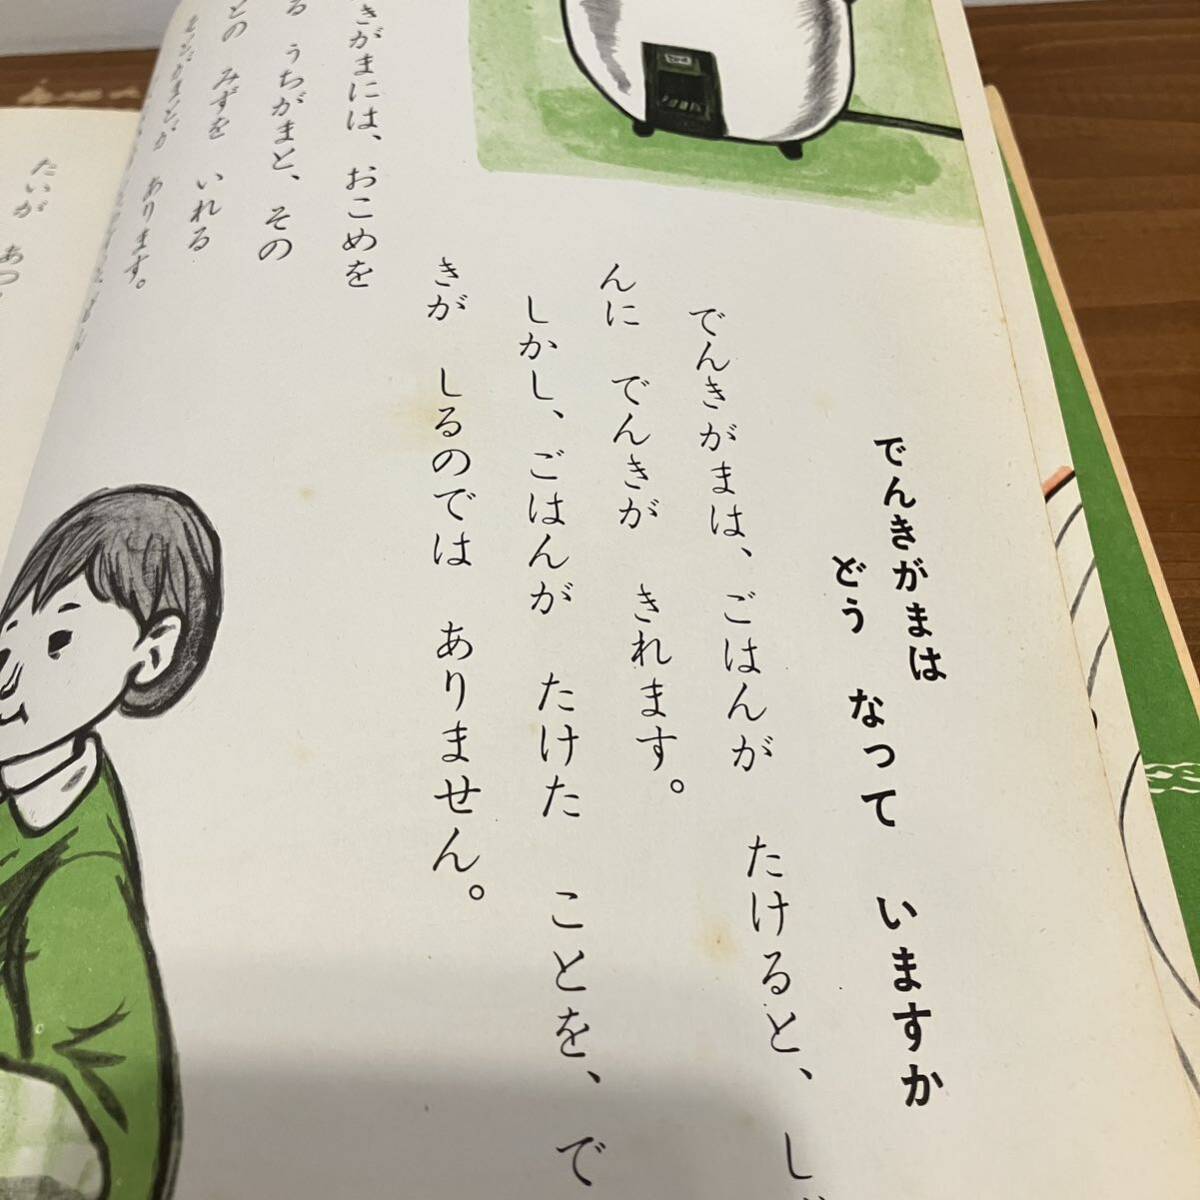 でんきがまは
どう なって いますか
でんきがまは、ごはんが たけると、し
んに でんきが きれます。
しかし、ごはんが たけた ことを、で
きが しるのでは ありません。
きがまには、おこめを
る うちがまと、その
との みずを いれる
あります。
たいが